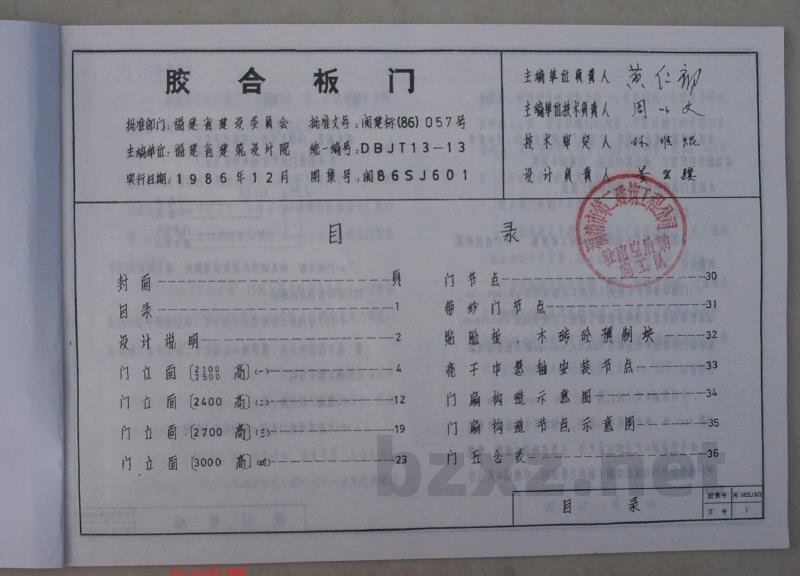 胶合板门
批准部门:福建省建设委员会 批准文号:闽建标(86)057号
主编单位:福建省建筑设计院 统一编号:DBJT13-13
实行日期:1986年12月 图集号:闽86SJ601
主编单位负责人
主编单位技术负责人
技术审定人
设计负责人
目录
封面 頁
目录 1
设计说明 2
门立面〔2100 2500 高〕(一) 4
门立面〔2400 高〕(二) 12
门立面〔2700 高〕(三) 19
门立面〔3000 高〕(四) 23
门节点 30
带纱门节点 31
贴脸板、木砖砼预制块 32
亮子中悬轴安装节点 33
门扇构造示意图 34
门扇构造节点示意图 35
门五仓表 36
bzxz.net
目录
图集号 闽86SJ601
页号 1